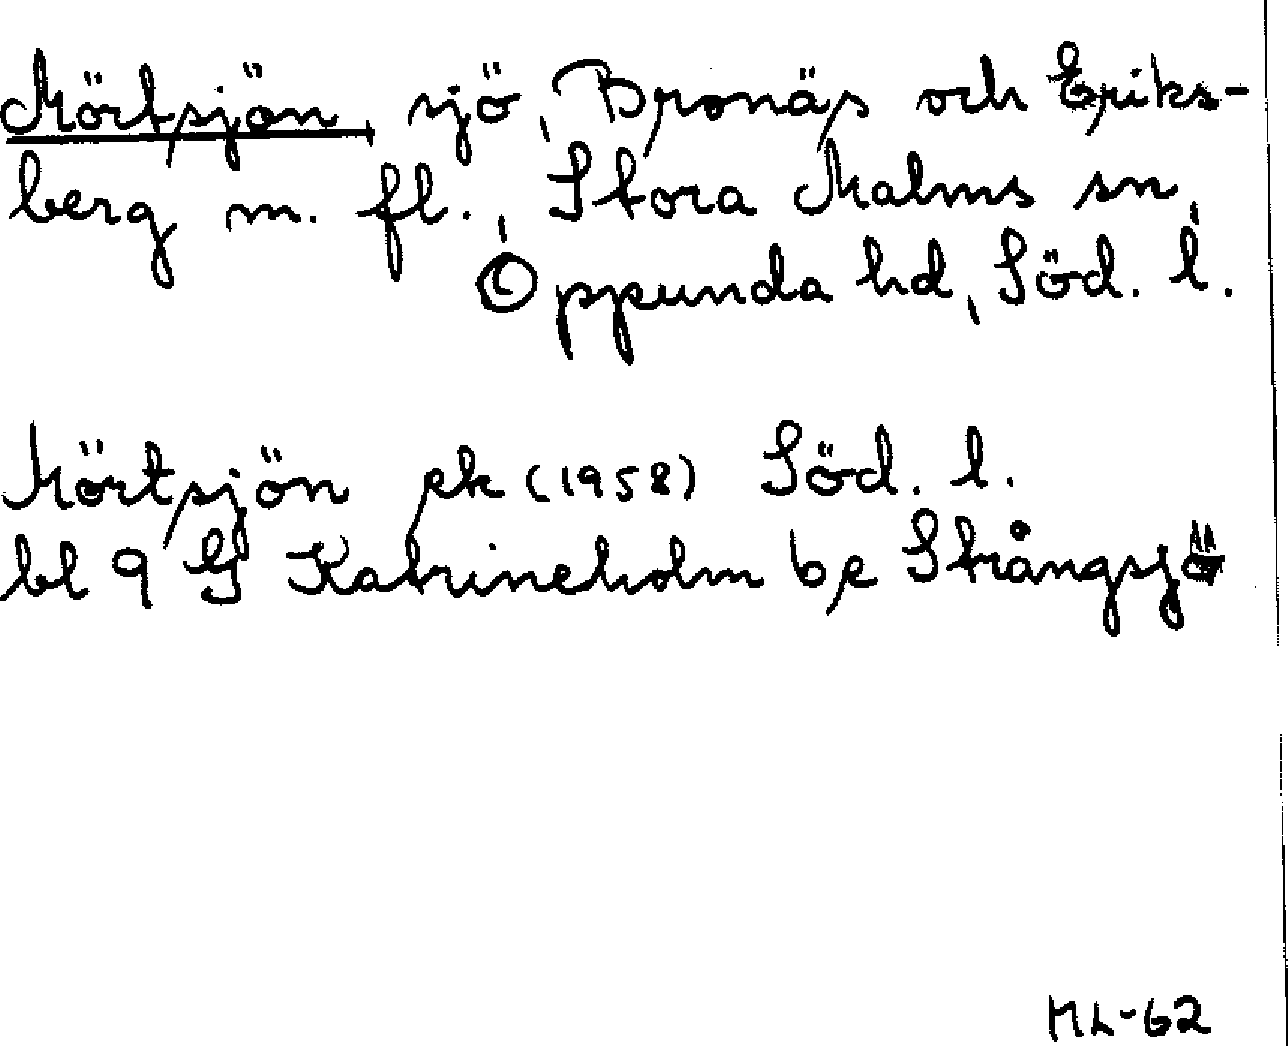 Mörtsjön, sjö, Bronäs och Eriks-
berg m. fl., Stora Malms sn,
Oppunda hd, Söd. l.
Mörtsjön ek (1958) Söd. l.
bl 9 G Katrineholm b,c Strångsjö
ML-62